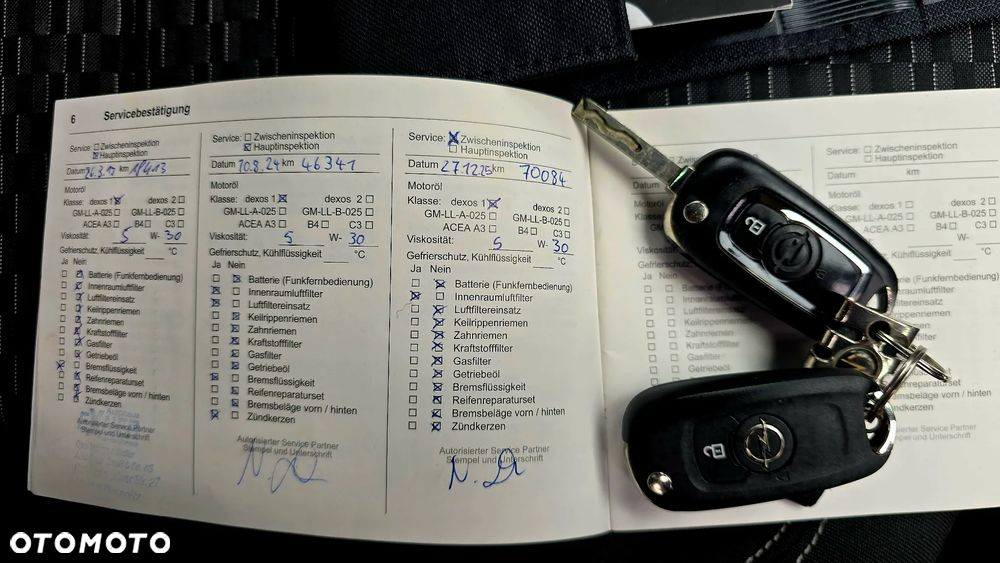 6 Servicebestätigung
Service: ☐ Zwischeninspektion
☒ Hauptinspektion
Datum km
Motoröl
Klasse: dexos 1 ☒ dexos 2 ☐
GM-LL-A-025 ☐ GM-LL-B-025 ☐
ACEA A3 ☐ B4 ☐ C3 ☐
Viskosität: 5 W- 30
Gefrierschutz, Kühlflüssigkeit ____ °C
Ja Nein
Batterie (Funkfernbedienung)
Innenraumluftfilter
Luftfiltereinsatz
Keilrippenriemen
Zahnriemen
Kraftstofffilter
Gasfilter
Getriebeöl
Bremsflüssigkeit
Reifenreparaturset
Bremsbeläge vorn / hinten
Zündkerzen
Autorisierter Service Partner
Stempel und Unterschrift
Service: ☐ Zwischeninspektion
☒ Hauptinspektion
Datum 10.8.24 km 46341
Motoröl
Klasse: dexos 1 ☒ dexos 2 ☐
GM-LL-A-025 ☐ GM-LL-B-025 ☐
ACEA A3 ☐ B4 ☐ C3 ☐
Viskosität: 5 W- 30
Gefrierschutz, Kühlflüssigkeit ____ °C
Ja Nein
☐ ☒ Batterie (Funkfernbedienung)
☒ ☐ Innenraumluftfilter
☒ ☐ Luftfiltereinsatz
☐ ☒ Keilrippenriemen
☐ ☒ Zahnriemen
☐ ☒ Kraftstofffilter
☐ ☒ Gasfilter
☐ ☒ Getriebeöl
☒ ☐ Bremsflüssigkeit
☐ ☒ Reifenreparaturset
☐ ☒ Bremsbeläge vorn / hinten
☒ ☐ Zündkerzen
Autorisierter Service Partner
Stempel und Unterschrift
Service: ☒ Zwischeninspektion
☐ Hauptinspektion
Datum 27.12.25 km 70084
Motoröl
Klasse: dexos 1 ☒ dexos 2 ☐
GM-LL-A-025 ☐ GM-LL-B-025 ☐
ACEA A3 ☐ B4 ☐ C3 ☐
Viskosität: 5 W- 30
Gefrierschutz, Kühlflüssigkeit ____ °C
Ja Nein
☐ ☒ Batterie (Funkfernbedienung)
☒ ☐ Innenraumluftfilter
☐ ☒ Luftfiltereinsatz
☐ ☒ Keilrippenriemen
☐ ☒ Zahnriemen
☐ ☒ Kraftstofffilter
☐ ☒ Gasfilter
☐ ☒ Getriebeöl
☐ ☒ Bremsflüssigkeit
☐ ☒ Reifenreparaturset
☐ ☒ Bremsbeläge vorn / hinten
☐ ☒ Zündkerzen
Autorisierter Service Partner
Stempel und Unterschrift
Datum
Motoröl
Klasse:
GM-LL-A-025
ACEA A3
Viskosität:
Gefrierschutz, Kühlflüssigkeit
Ja Nein
Batterie
Innenraumluftfilter
Luftfiltereinsatz
Keilrippenriemen
Zahnriemen
Kraftstofffilter
Gasfilter
Service: ☐ Zwischeninspektion
☐ Hauptinspektion
Datum km
dexos 2 ☐
GM-LL-B-025 ☐
C3 ☐
W-
°C
Autorisierter Service Partner
Stempel und Unterschrift
OTOMOTO